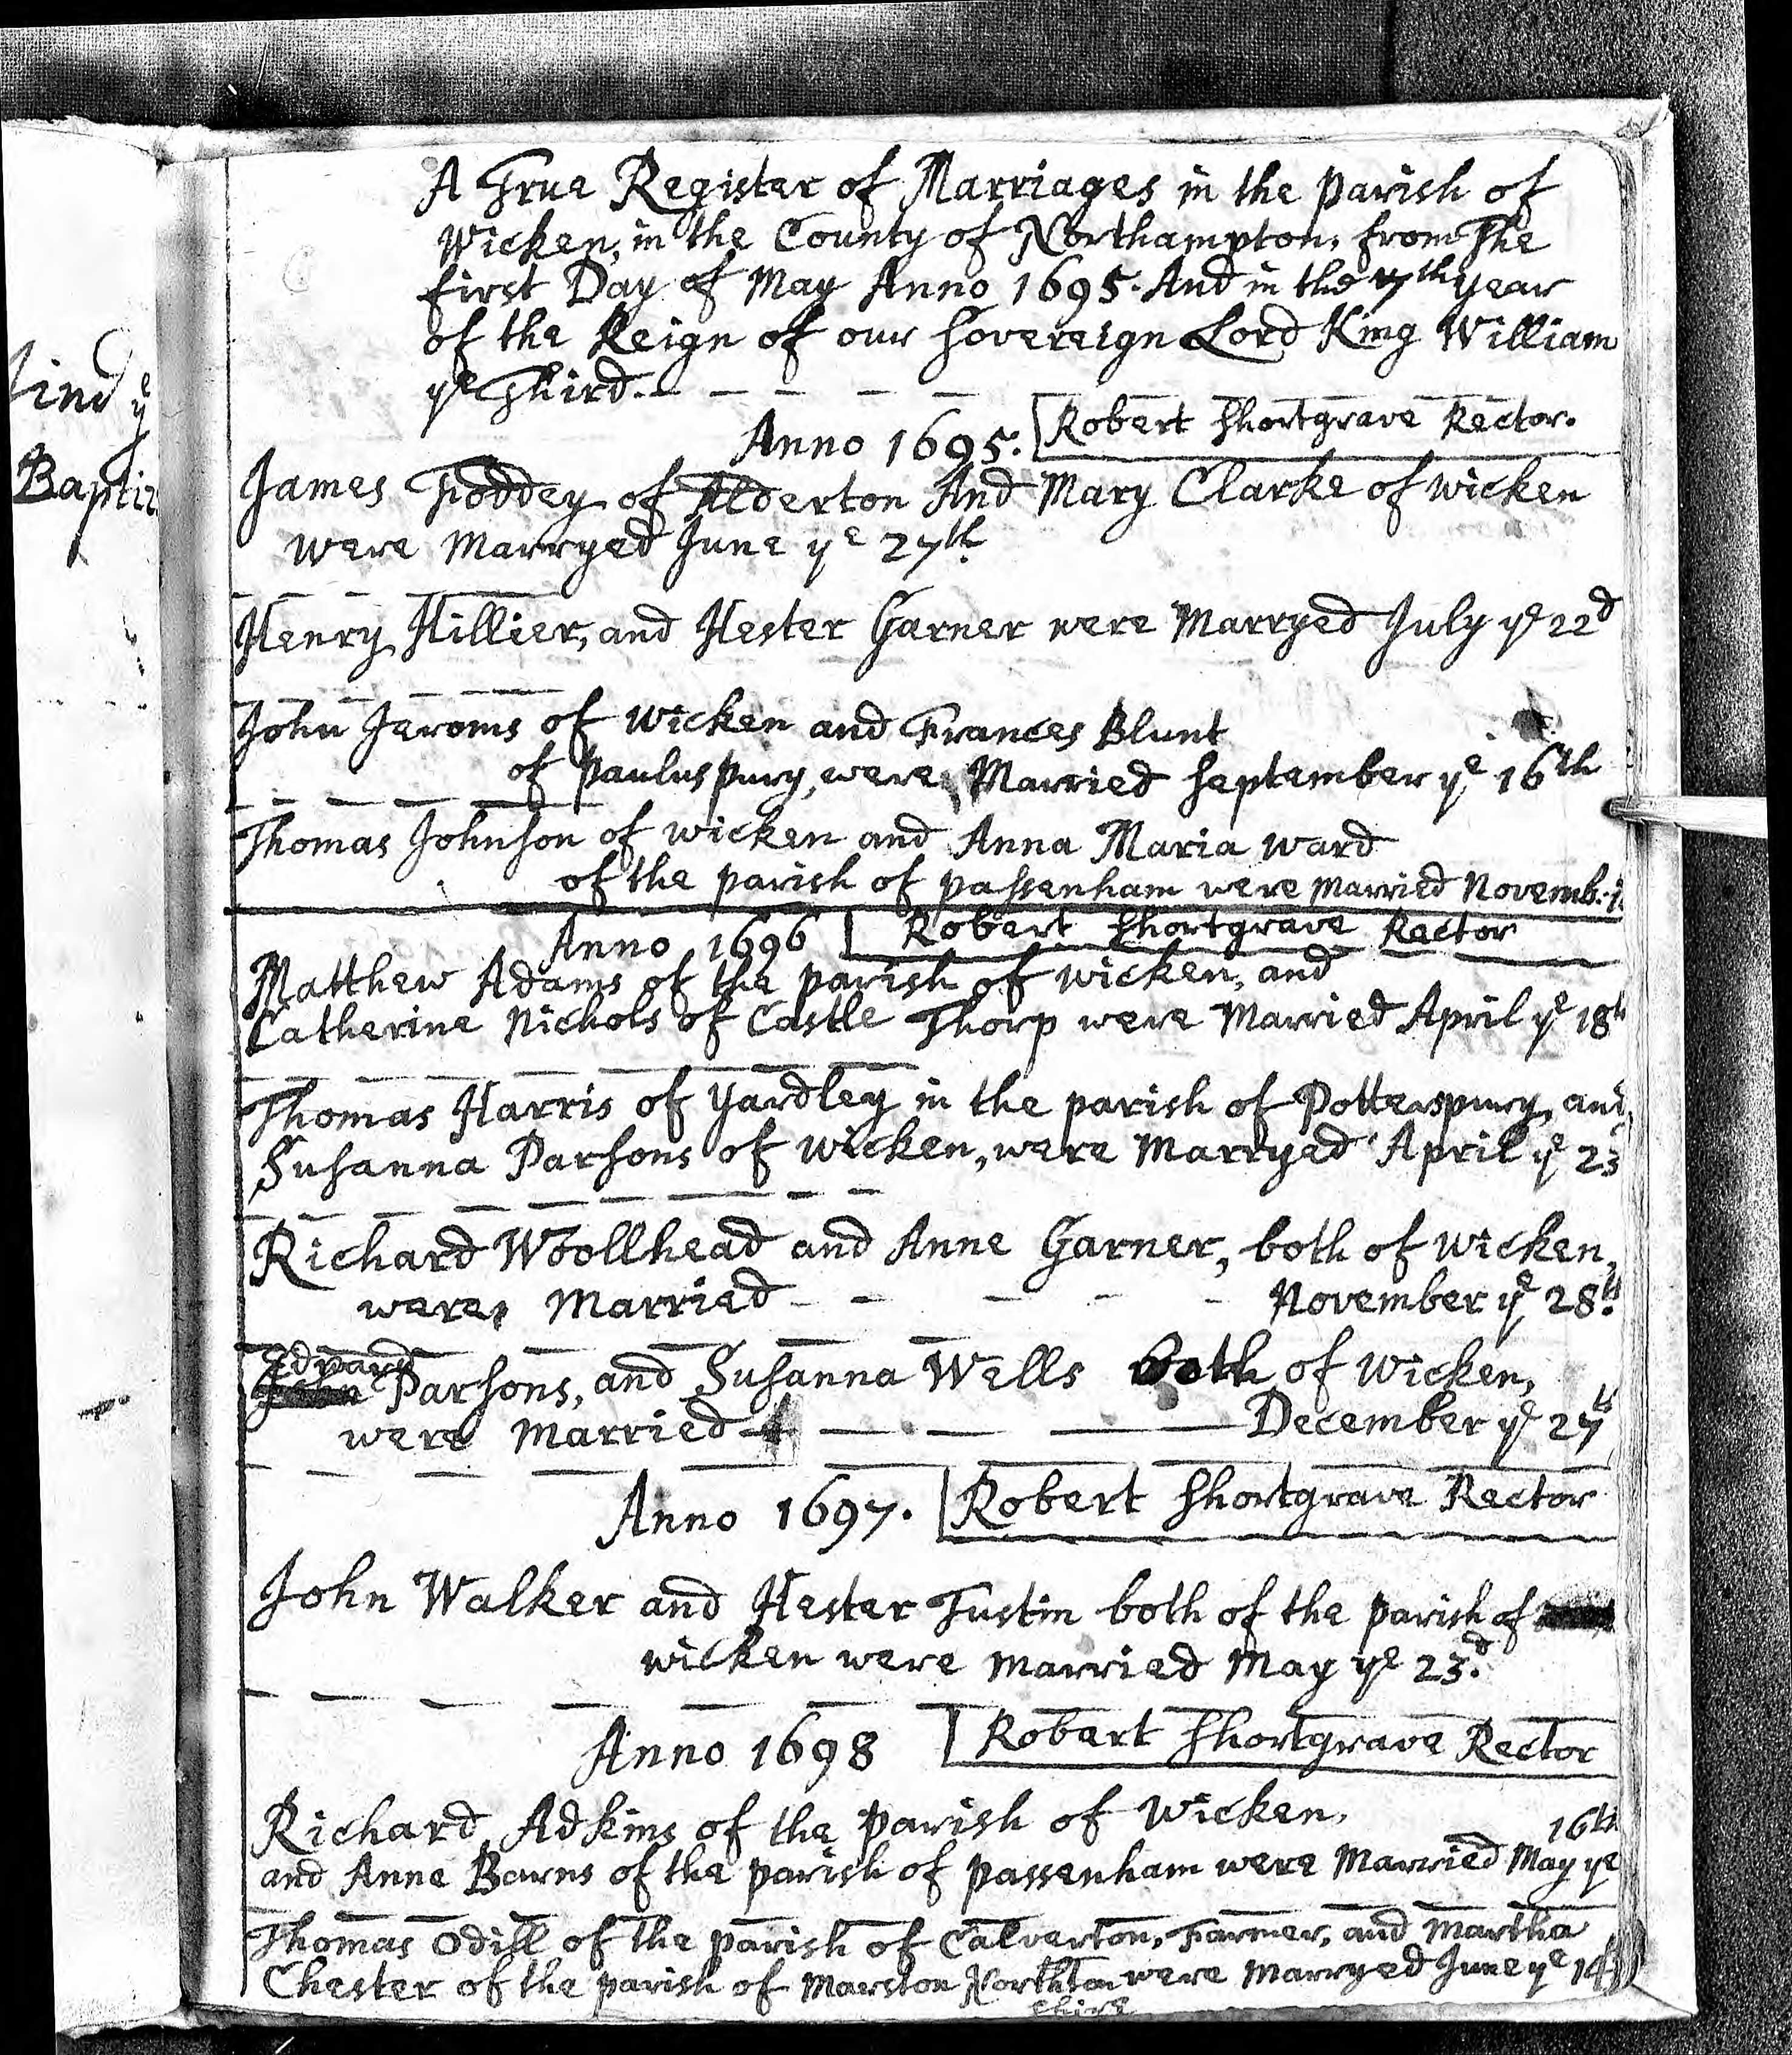 A True Register of Marriages in the parish of
Wicken, in the County of Northampton, from The
first Day of May Anno 1695. And in the 7th year
of the Reign of our Sovereign Lord King William
ye Third.
Anno 1695. Robert Shortgrave Rector.
James Foddey of Alderton And Mary Clarke of wicken
were Marryed June ye 27th
Henry Hillier, and Hester Garner were Marryed July ye 22d
John Jeroms of Wicken and Frances Blunt
of Pauluspury, were Married September ye 16th
Thomas Johnson of wicken and Anna Maria Ward
of the parish of passenham were Married Novemb.
Anno 1696 Robert Shortgrave Rector
Matthew Adams of the parish of wicken, and
Catherine Nichols of Castle Thorp were Married April ye 18th
Thomas Harris of Yardley in the parish of Potterspury, and
Susanna Parsons of Wicken, were Marryed April ye 23
Richard Woollhead and Anne Garner, both of wicken,
were, Married November ye 28th
Edward
John Parsons, and Susanna Wells both of Wicken,
were Married December ye 27th
Anno 1697. Robert Shortgrave Rector
John Walker and Hester Tustin both of the parish of
wicken were married May ye 23d
Anno 1698 Robert Shortgrave Rector
Richard Adkins of the Parish of Wicken, 16th
and Anne Barns of the parish of passenham were Married May ye
Thomas Odill of the parish of Calverton, Farmer, and Martha
Chester of the parish of Marston Northton were Marryed June ye 14
shire
ye
Baptiz